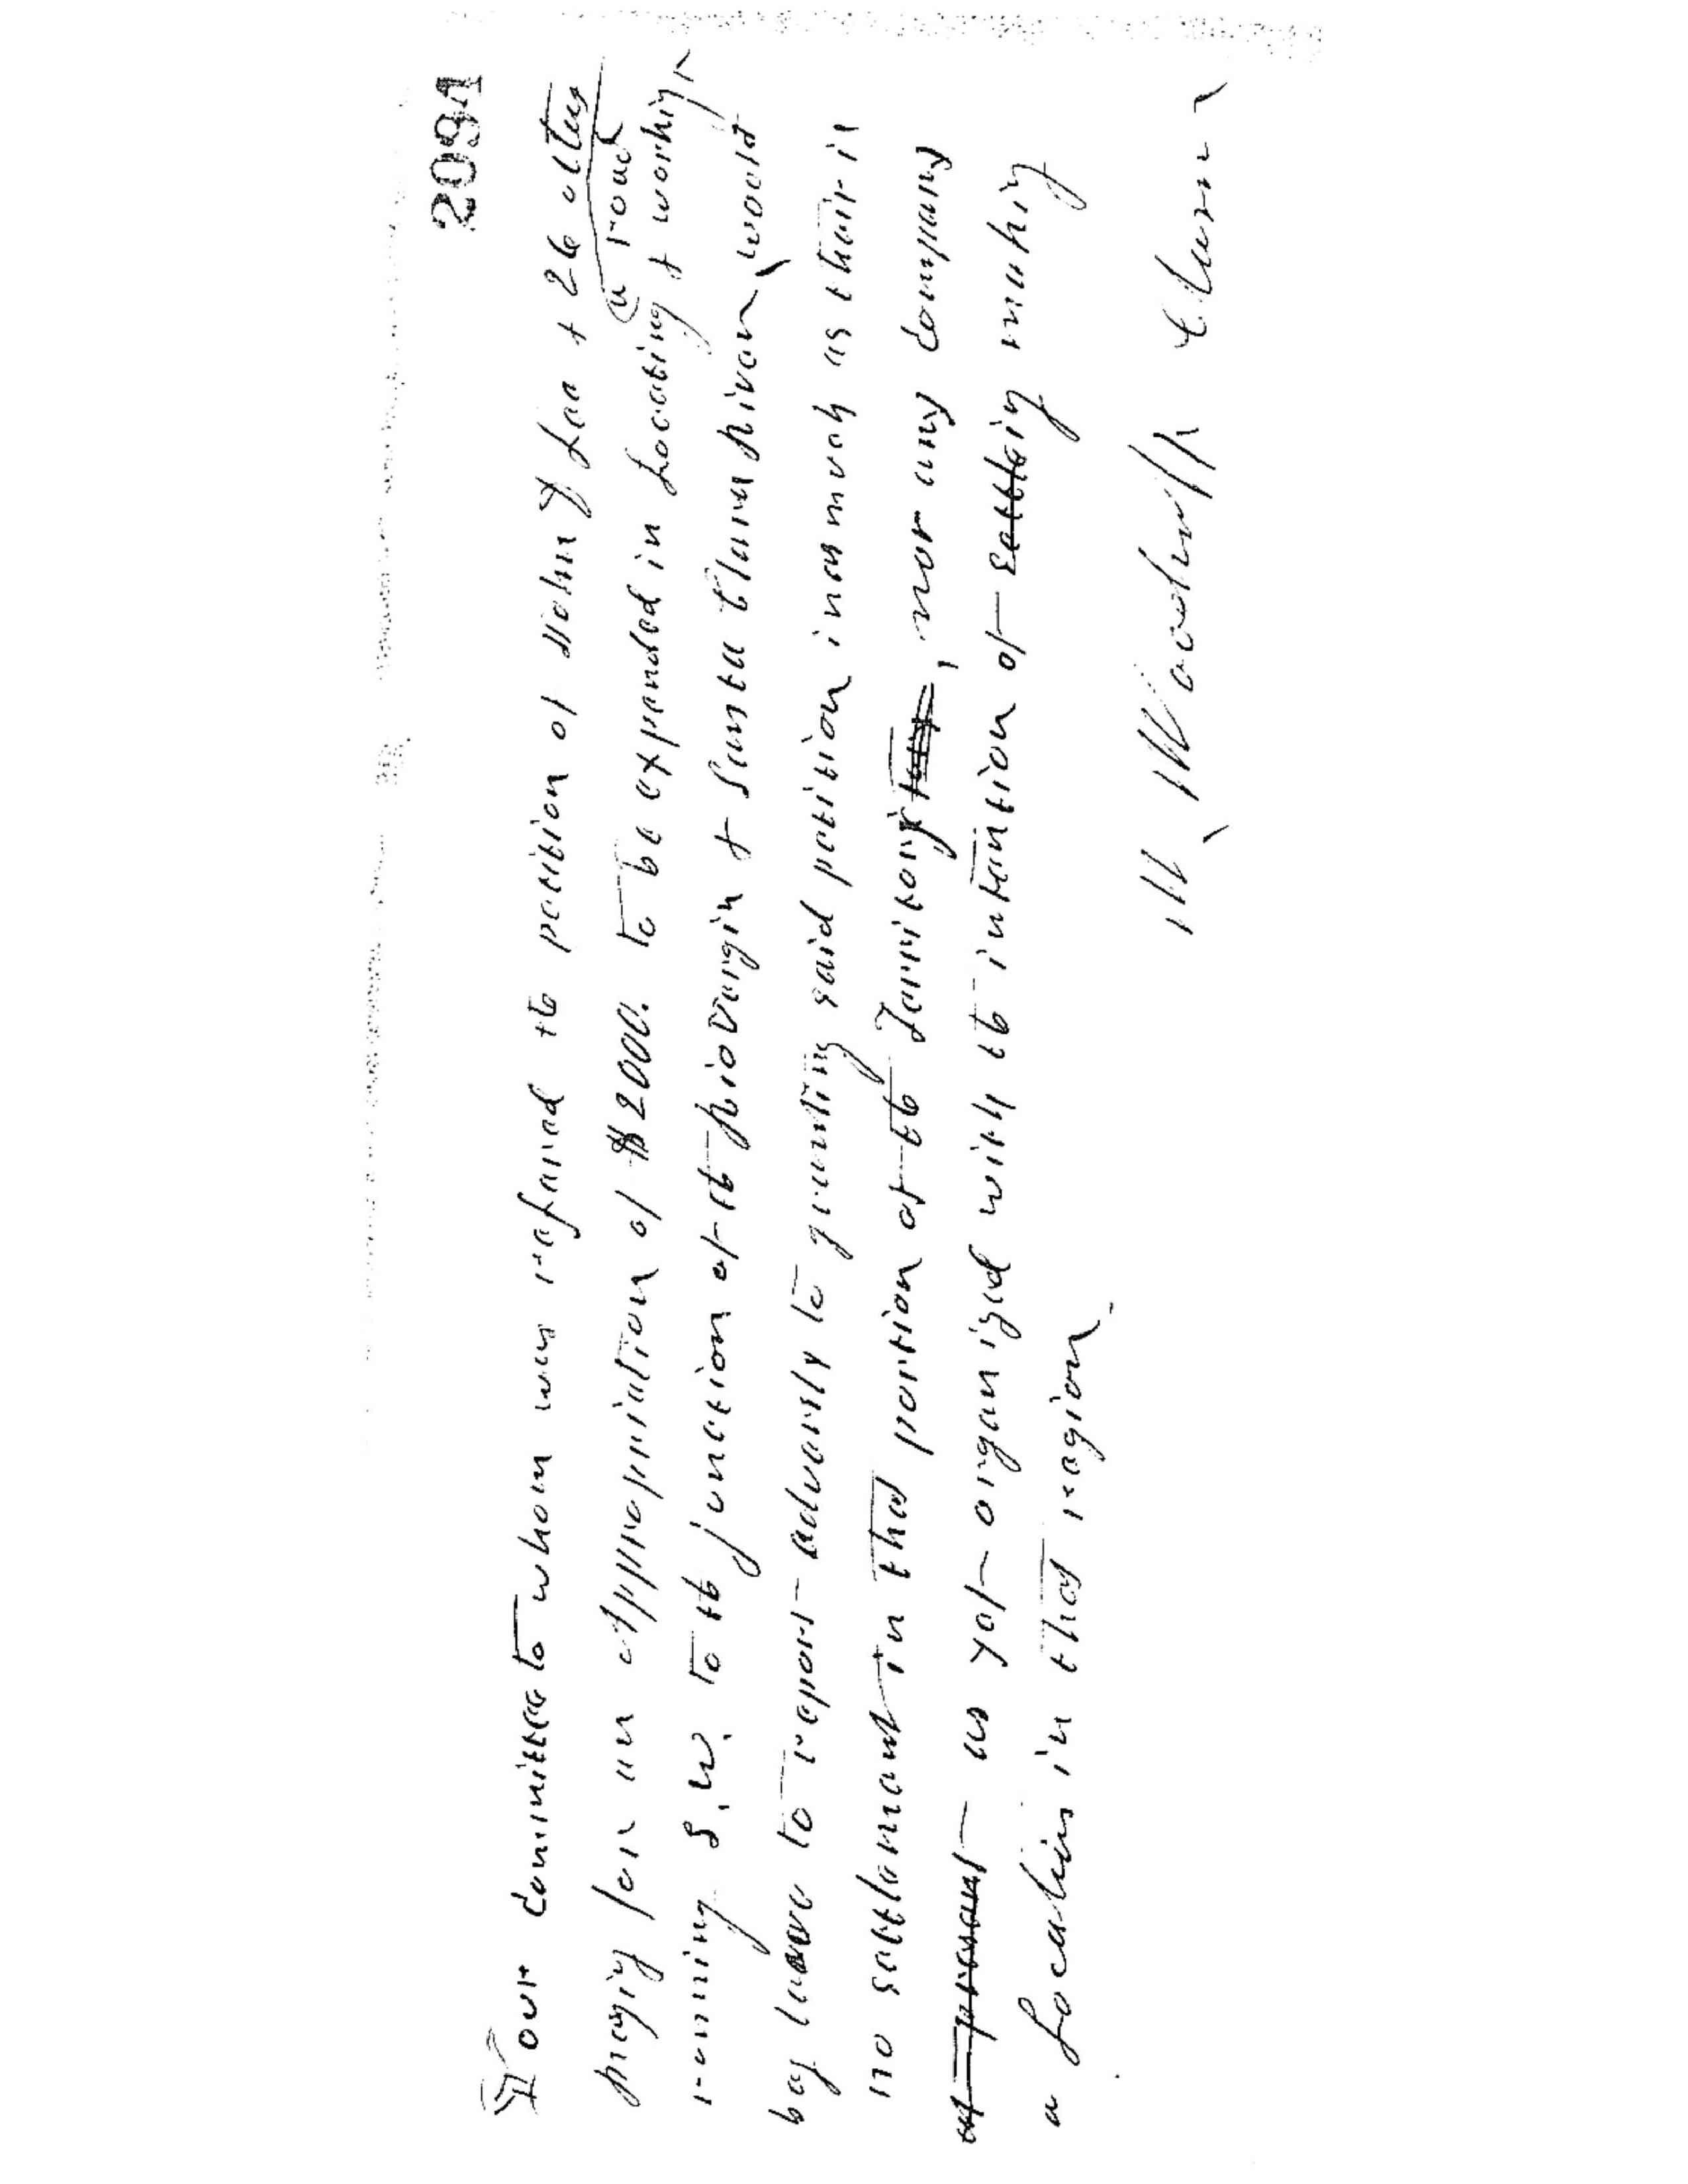 2091
Your Committee to whom was refared tb petition of John D Lee & 26 others
praying for an appropriation of $2000. to be expended in Locating & working a road
runing S. W. to tb junction of tb Rio Vergin & Santa Clara Rivers would
beg leave to report adversly to granting said petition inasmuch as thair is
no settlement in that portion of tb Territory, nor any company
at present as yet organized with tb intention of settleig makig
a Location in that region
W. Woodruff Chem